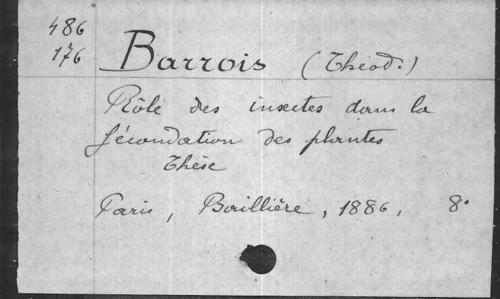 486
176
Barrois (Théod.)
Rôle des insectes dans la
fécondation des plantes
Thèse
Paris, Baillière, 1886, 8°